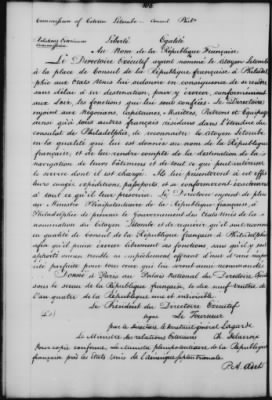 Liberté Egalité
Au Nom de la République Française.
Le Directoire Exécutif ayant nommé le citoyen Létombe
à la place de Consul de la République française, à Philadel
phie aux Etats unis lui ordonne en conséquence de se rendre
sans délai à sa destination, pour y exercer conformément
aux Loix, les fonctions que lui sont confiées. Le Directoire
enjoint aux Négocians, Capitaines, Maîtres, Patrons et Equipages
ainsi qu'à tous autres français résidans dans l'étendue du
consulat de Philadelphia, de reconnaitre le citoyen Letombe
en la qualité que lui est donnée au nom de la République
française, et de lui rendre compte de la destination de la
navigation de leurs bâtimens et de tout ce qui peut intéresser
le service dont il est chargé. Ils lui présenteront à cet effet
leurs congés, expéditions, passeports et se conformeront exactement
à tout ce qu'il leur prescrira. Le Directoire enjoint de plus
au Ministre Plénipotentiaire de la République française, à
Philadelphie de prévenir le Gouvernement des Etats unis de la
nomination du Citoyen Létombe et de requérir qu'il soit reconnu
en qualité de Consul de la République française à Philadelphie
afin qu'il puisse exercer librement ses fonctions, sans qu'il y soit
apporté aucun trouble ni empêchement
parfaite pour tous ceux qui lui seront ainsi recommandés.
Donné à Paris au Palais National du Directoire Exécutif
sous le sceau de la République française, le dix neuf
l'an quatre de la République une et indivisible.
Le Président du Directoire Exécutif
signé Le Tourneur
par le Directoire, le Secrétaire général Lagarde
Le Ministre des relations Extérieures Ch. Delacroix
Pour copie conforme, Le Ministre plénipotentiaire de la République
française près les Etats Unis de l'Amérique septentrionale
P. A. Adet